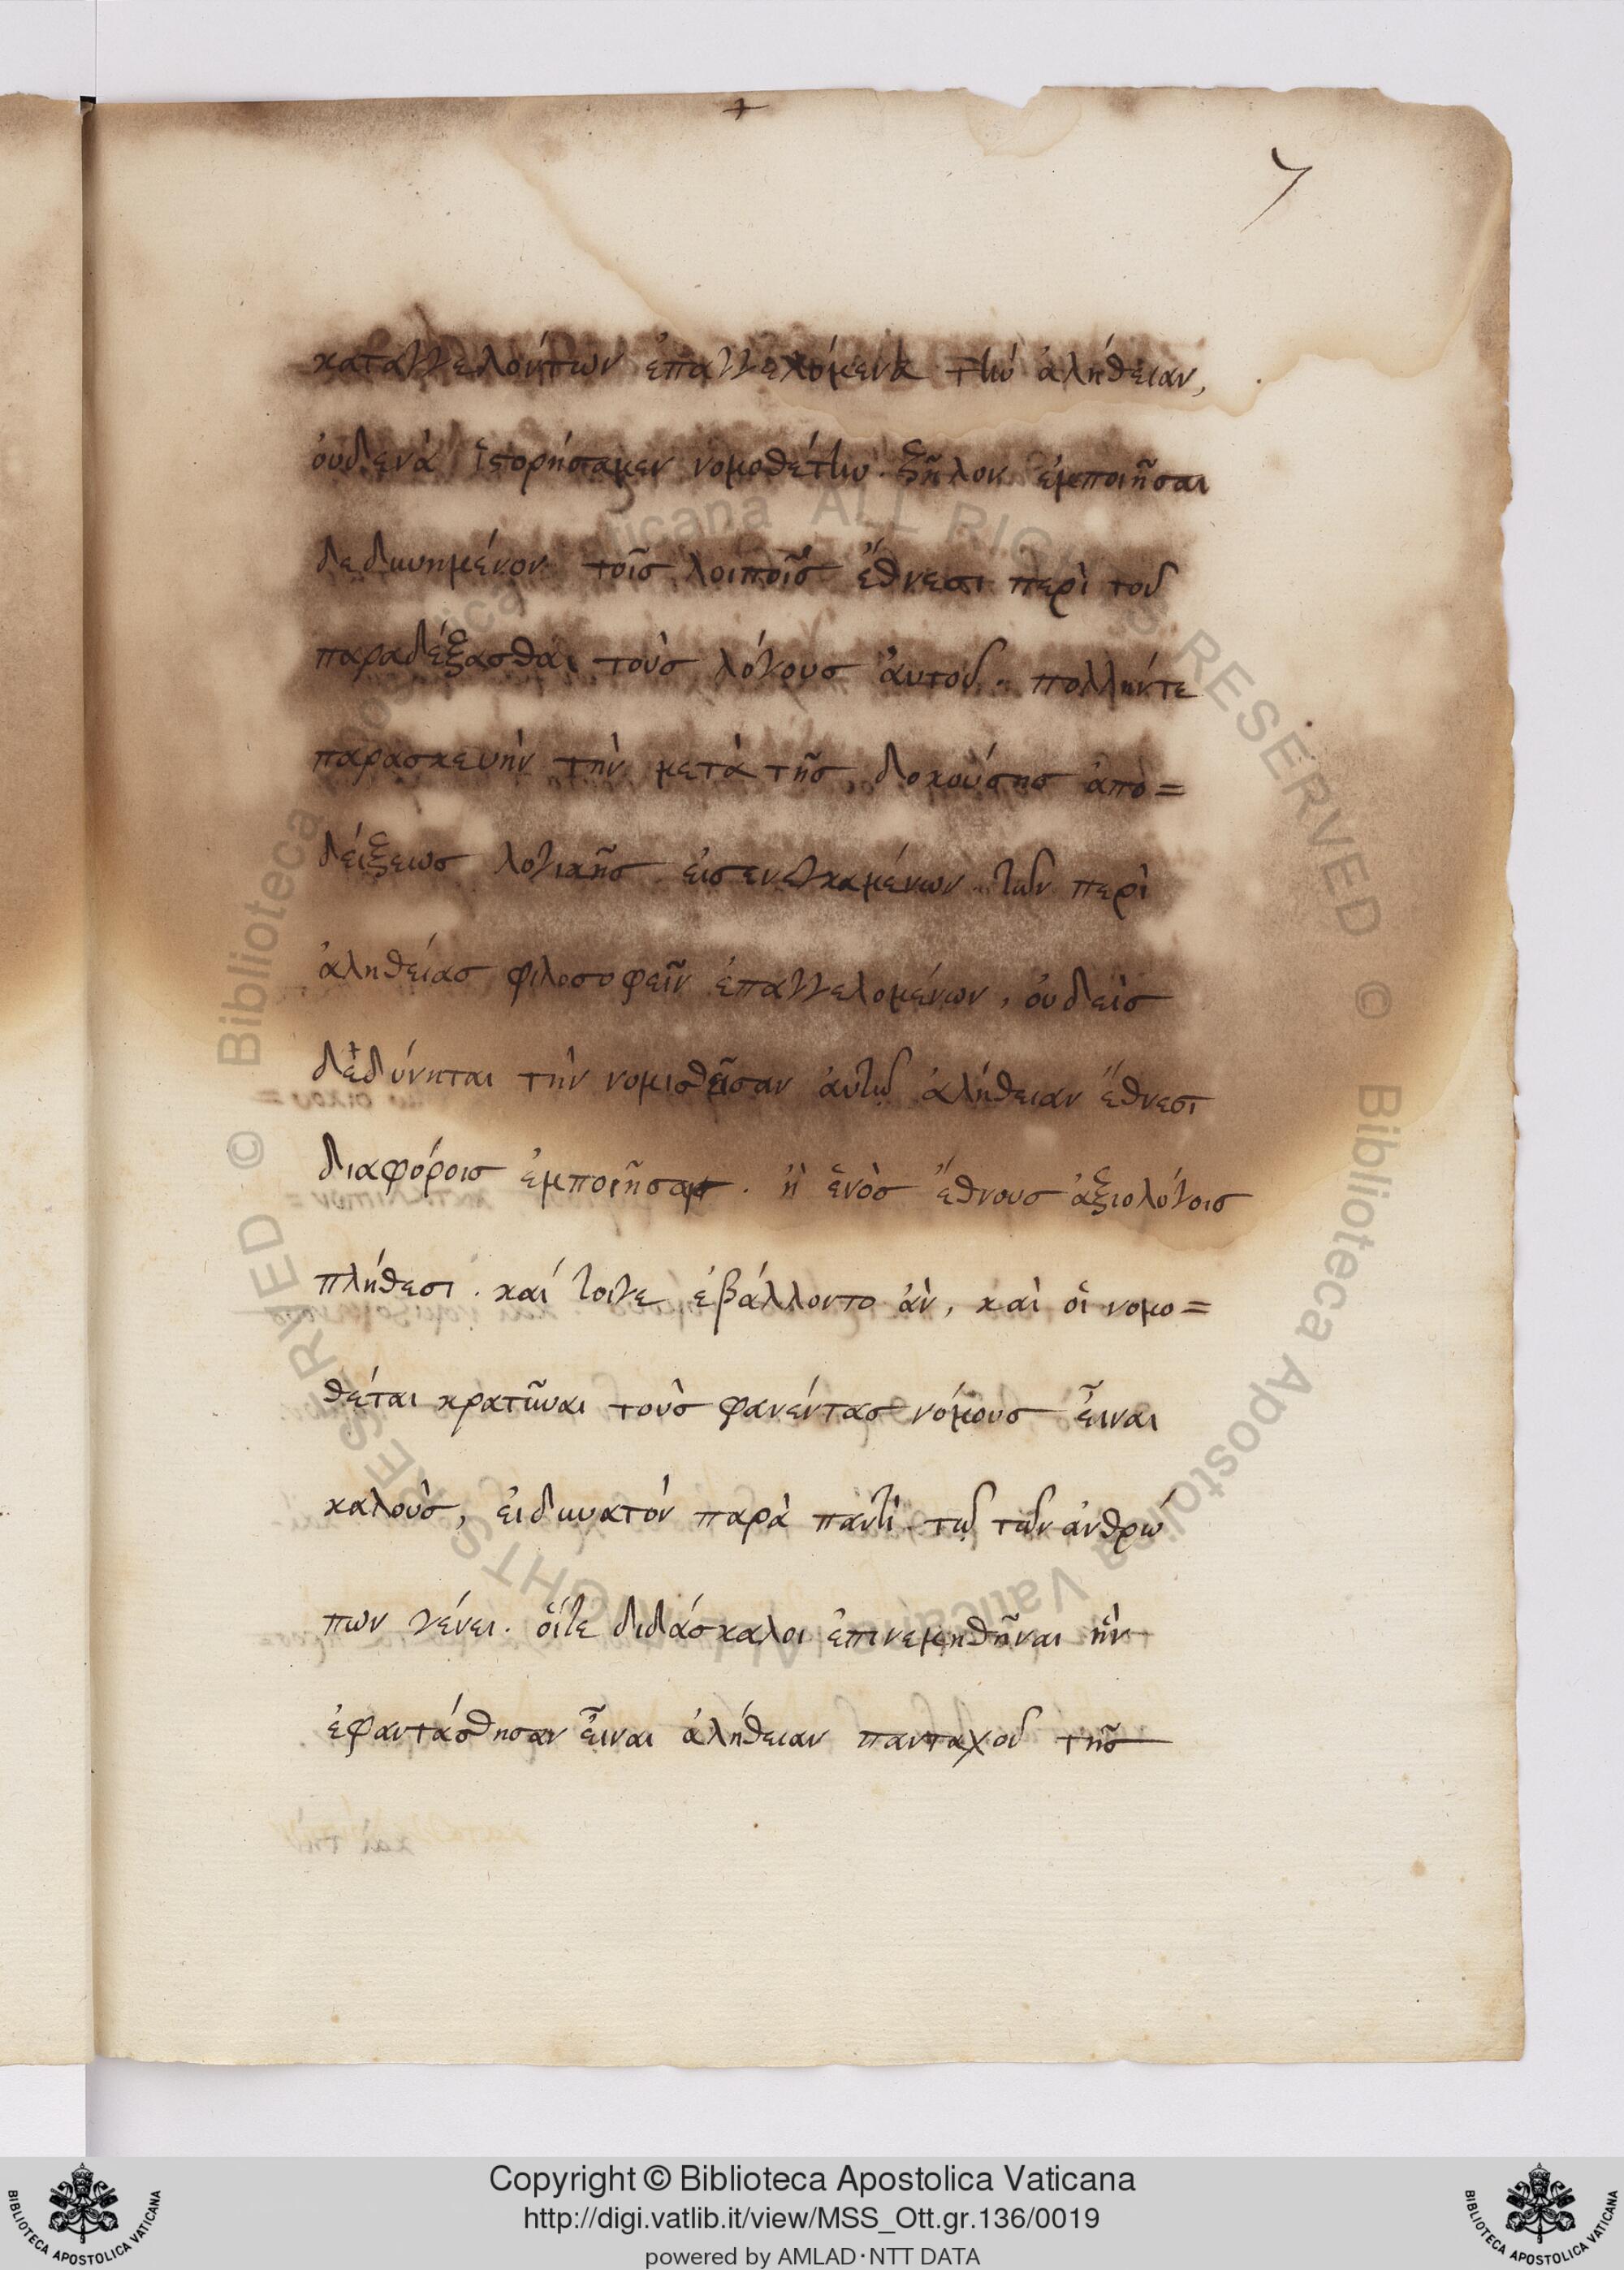 +
7
καταγγελόντων ἐπαγγελόμενα τὴν ἀλήθειαν,
ὀυδενὰ ἱστορήσαμεν νομοθέτην. ζῆλον ἐμποιῆσαι
δεδυνημένον τοῖσ λοιποῖσ ἔθνεσι περὶ τοῦ
παραδέξασθαι τοὺσ λόγουσ ἀυτοῦ. πολλήντε
παρασκευὴν τὴν μετὰ τῆσ δοκούσησ ἀπο=
δείξεωσ λογικῆσ. εἰσενεγκαμένων τῶν περὶ
ἀληθείασ φιλοσοφεῖν ἐπαγγελομένων, ὀυδεὶσ
δεδύνηται τὴν νομισθεῖσαν ἀυτῷ ἀλήθειαν ἔθνεσι
διαφόροισ ἐμποιῆσαι. ἢ ἑνὸσ ἔθνουσ ἀξιολόγοισ
πλήθεσι. καί τοιγε ἐβάλλοντο ἀν, καὶ ὁι νομο=
θέται κρατῦναι τοὺσ φανέντασ νόμουσ ἐῖναι
καλοὺσ, ἐιδυνατόν παρὰ παντὶ τῷ τῶν ἀνθρώ
πων γένει. ὁίτε διδάσκαλοι ἐπινεμηθῆναι ἣν
ἐφαντάσθησαν ἐῖναι ἀλήθειαν πανταχοῦ τῆσ
Biblioteca Apostolica Vaticana ALL RIGHTS RESERVED © Biblioteca Apostolica Vaticana ALL RIGHTS RESERVED ©
Copyright © Biblioteca Apostolica Vaticana
http://digi.vatlib.it/view/MSS_Ott.gr.136/0019
powered by AMLAD·NTT DATA
BIBLIOTECA APOSTOLICA VATICANA
BIBLIOTECA APOSTOLICA VATICANA